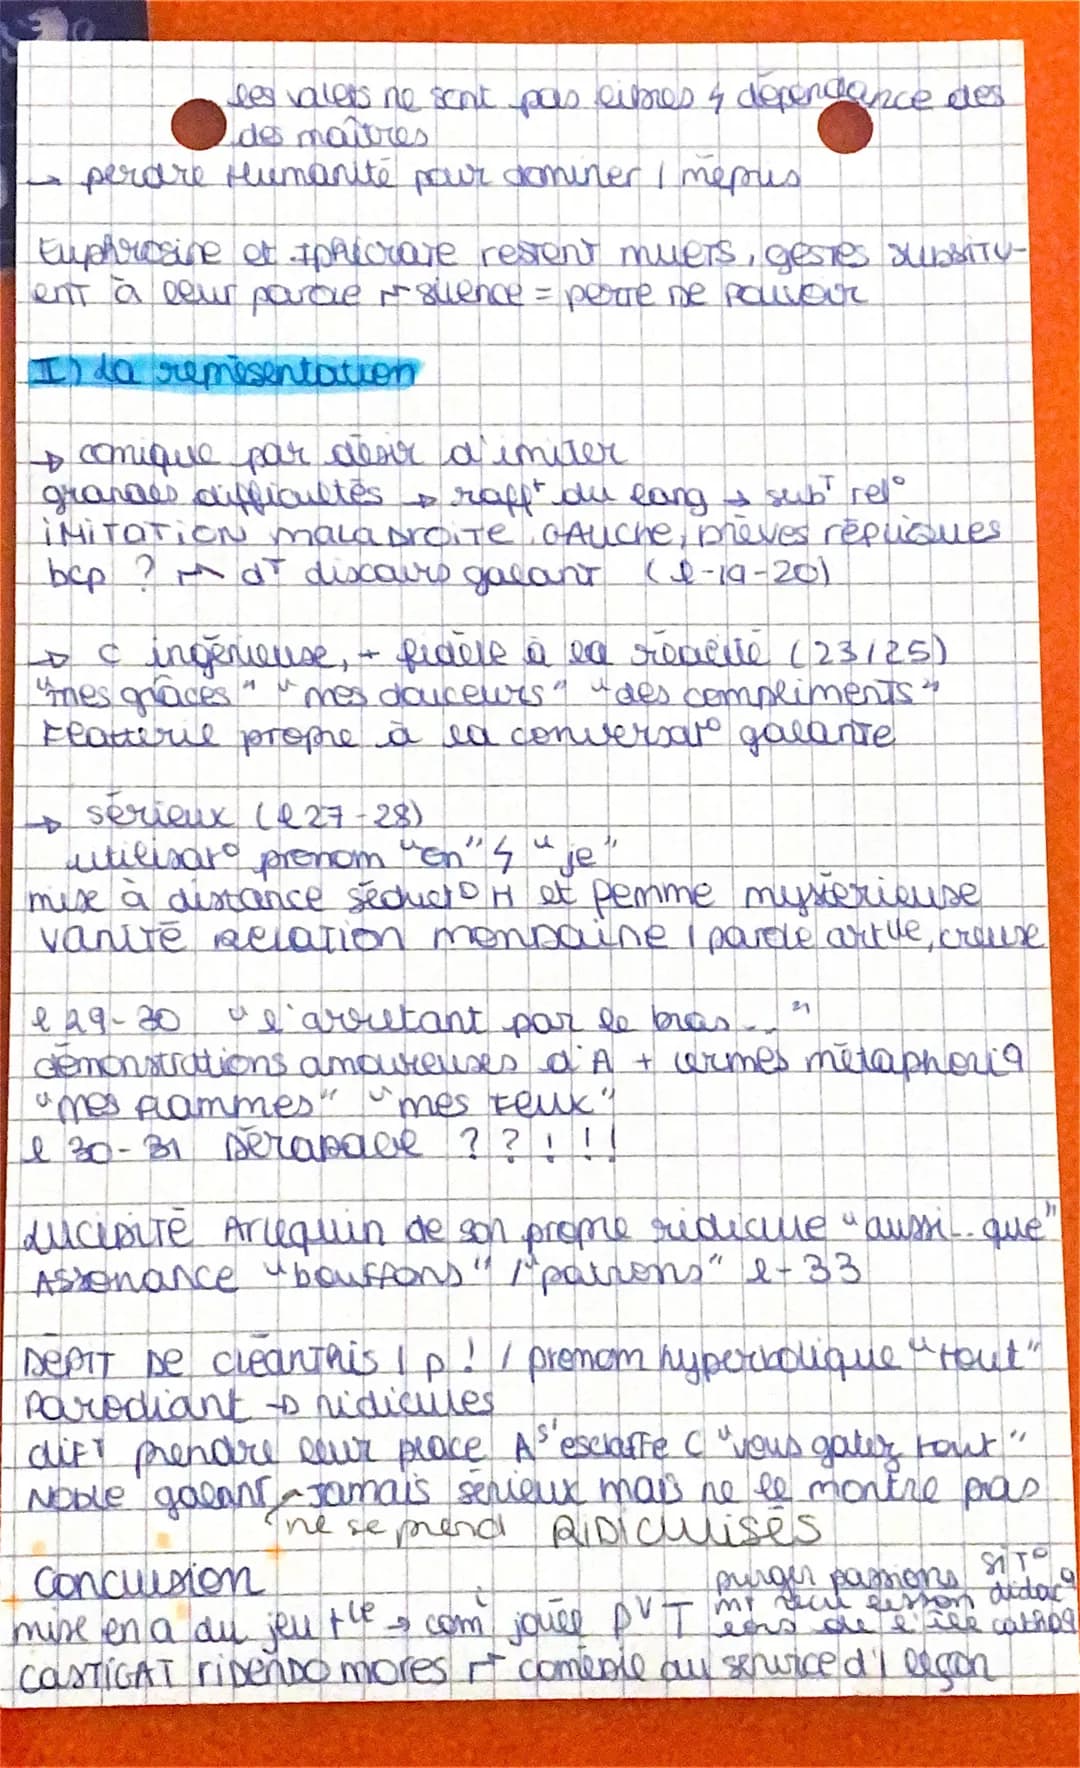 les valets ne sont pas libres ↯ dépendance des
des maîtres
→ perdre Humanité pour dominer / mépris
Euphrosine et Iphicrate restent muets, gestes substitu-
ent à leur parole ↦ silence = perte de pouvoir
II) La représentation
→ comique par désir d'imiter
grandes difficultés → raff^t du lang → sub^T rel°
IMITATION MALADROITE, GAUCHE, brèves répliques
bcp ? ↦ d^T discours galant (l-19-20)
→ C ingénieuse, + fidèle à la réalité (23/25)
"mes grâces" "mes douceurs" "des compliments"
Flatterie propre à la conversat° galante
→ sérieux (l 27-28)
utilisat° pronom "on" ↯ "je"
mise à distance séduct° H et femme mystérieuse
vanité relation mondaine / parole art^lle, creuse
l 29-30 "l'arrêtant par le bras..."
démonstrations amoureuses d'A + termes métaphoriq
"mes flammes" "mes feux"
l 30-31 Dérapage ??!!!
LUCIDITÉ Arlequin de son propre ridicule "aussi... que"
Assonance "bouffons" / "patrons" l-33
DÉPIT DE Cléanthis / p! / pronom hyperbolique "tout"
Parodiant → ridicules
diff^T prendre leur place A s'esclaffe C "vous gâtez tout"
Noble galant jamais sérieux mais ne le montre pas
ne se prend RIDICULISÉS
Conclusion
purger passions SIT°
didac^q
mise en a du jeu t^le → com jouée
de l'île
CASTIGAT RIDENDO MORES ↦ comédie au service d'1 leçon